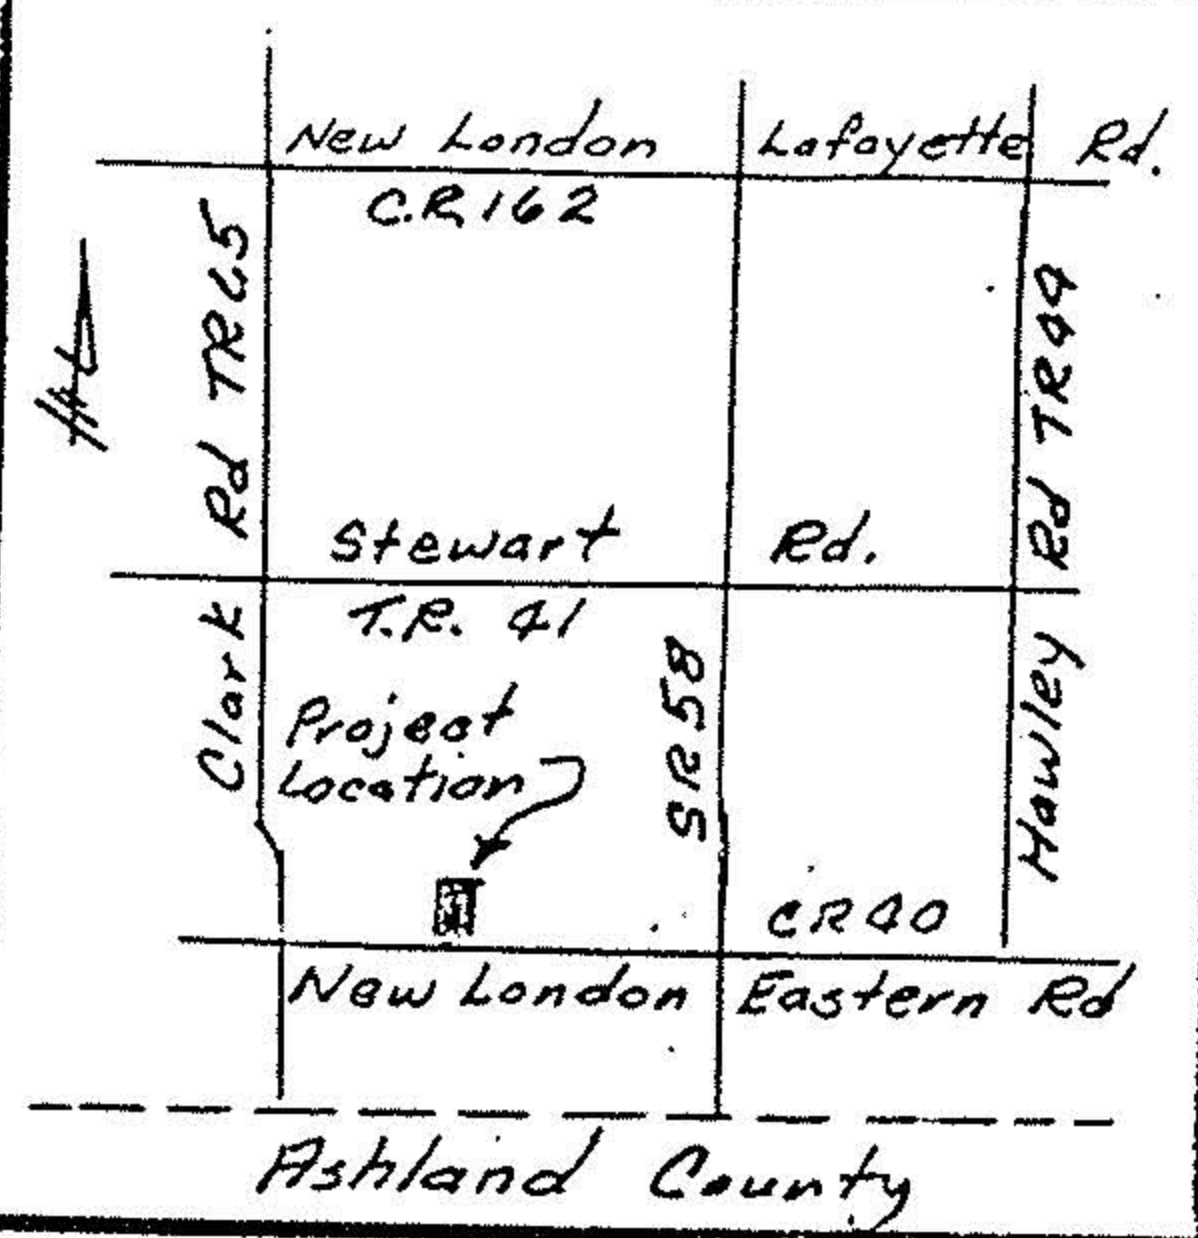 New London Lafayette Rd.
C.R. 162
Clark Rd TR 65
Hawley Rd TR 44
N
Stewart Rd.
T.R. 41
SR 58
Project
Location
CR 40
New London Eastern Rd
Ashland County